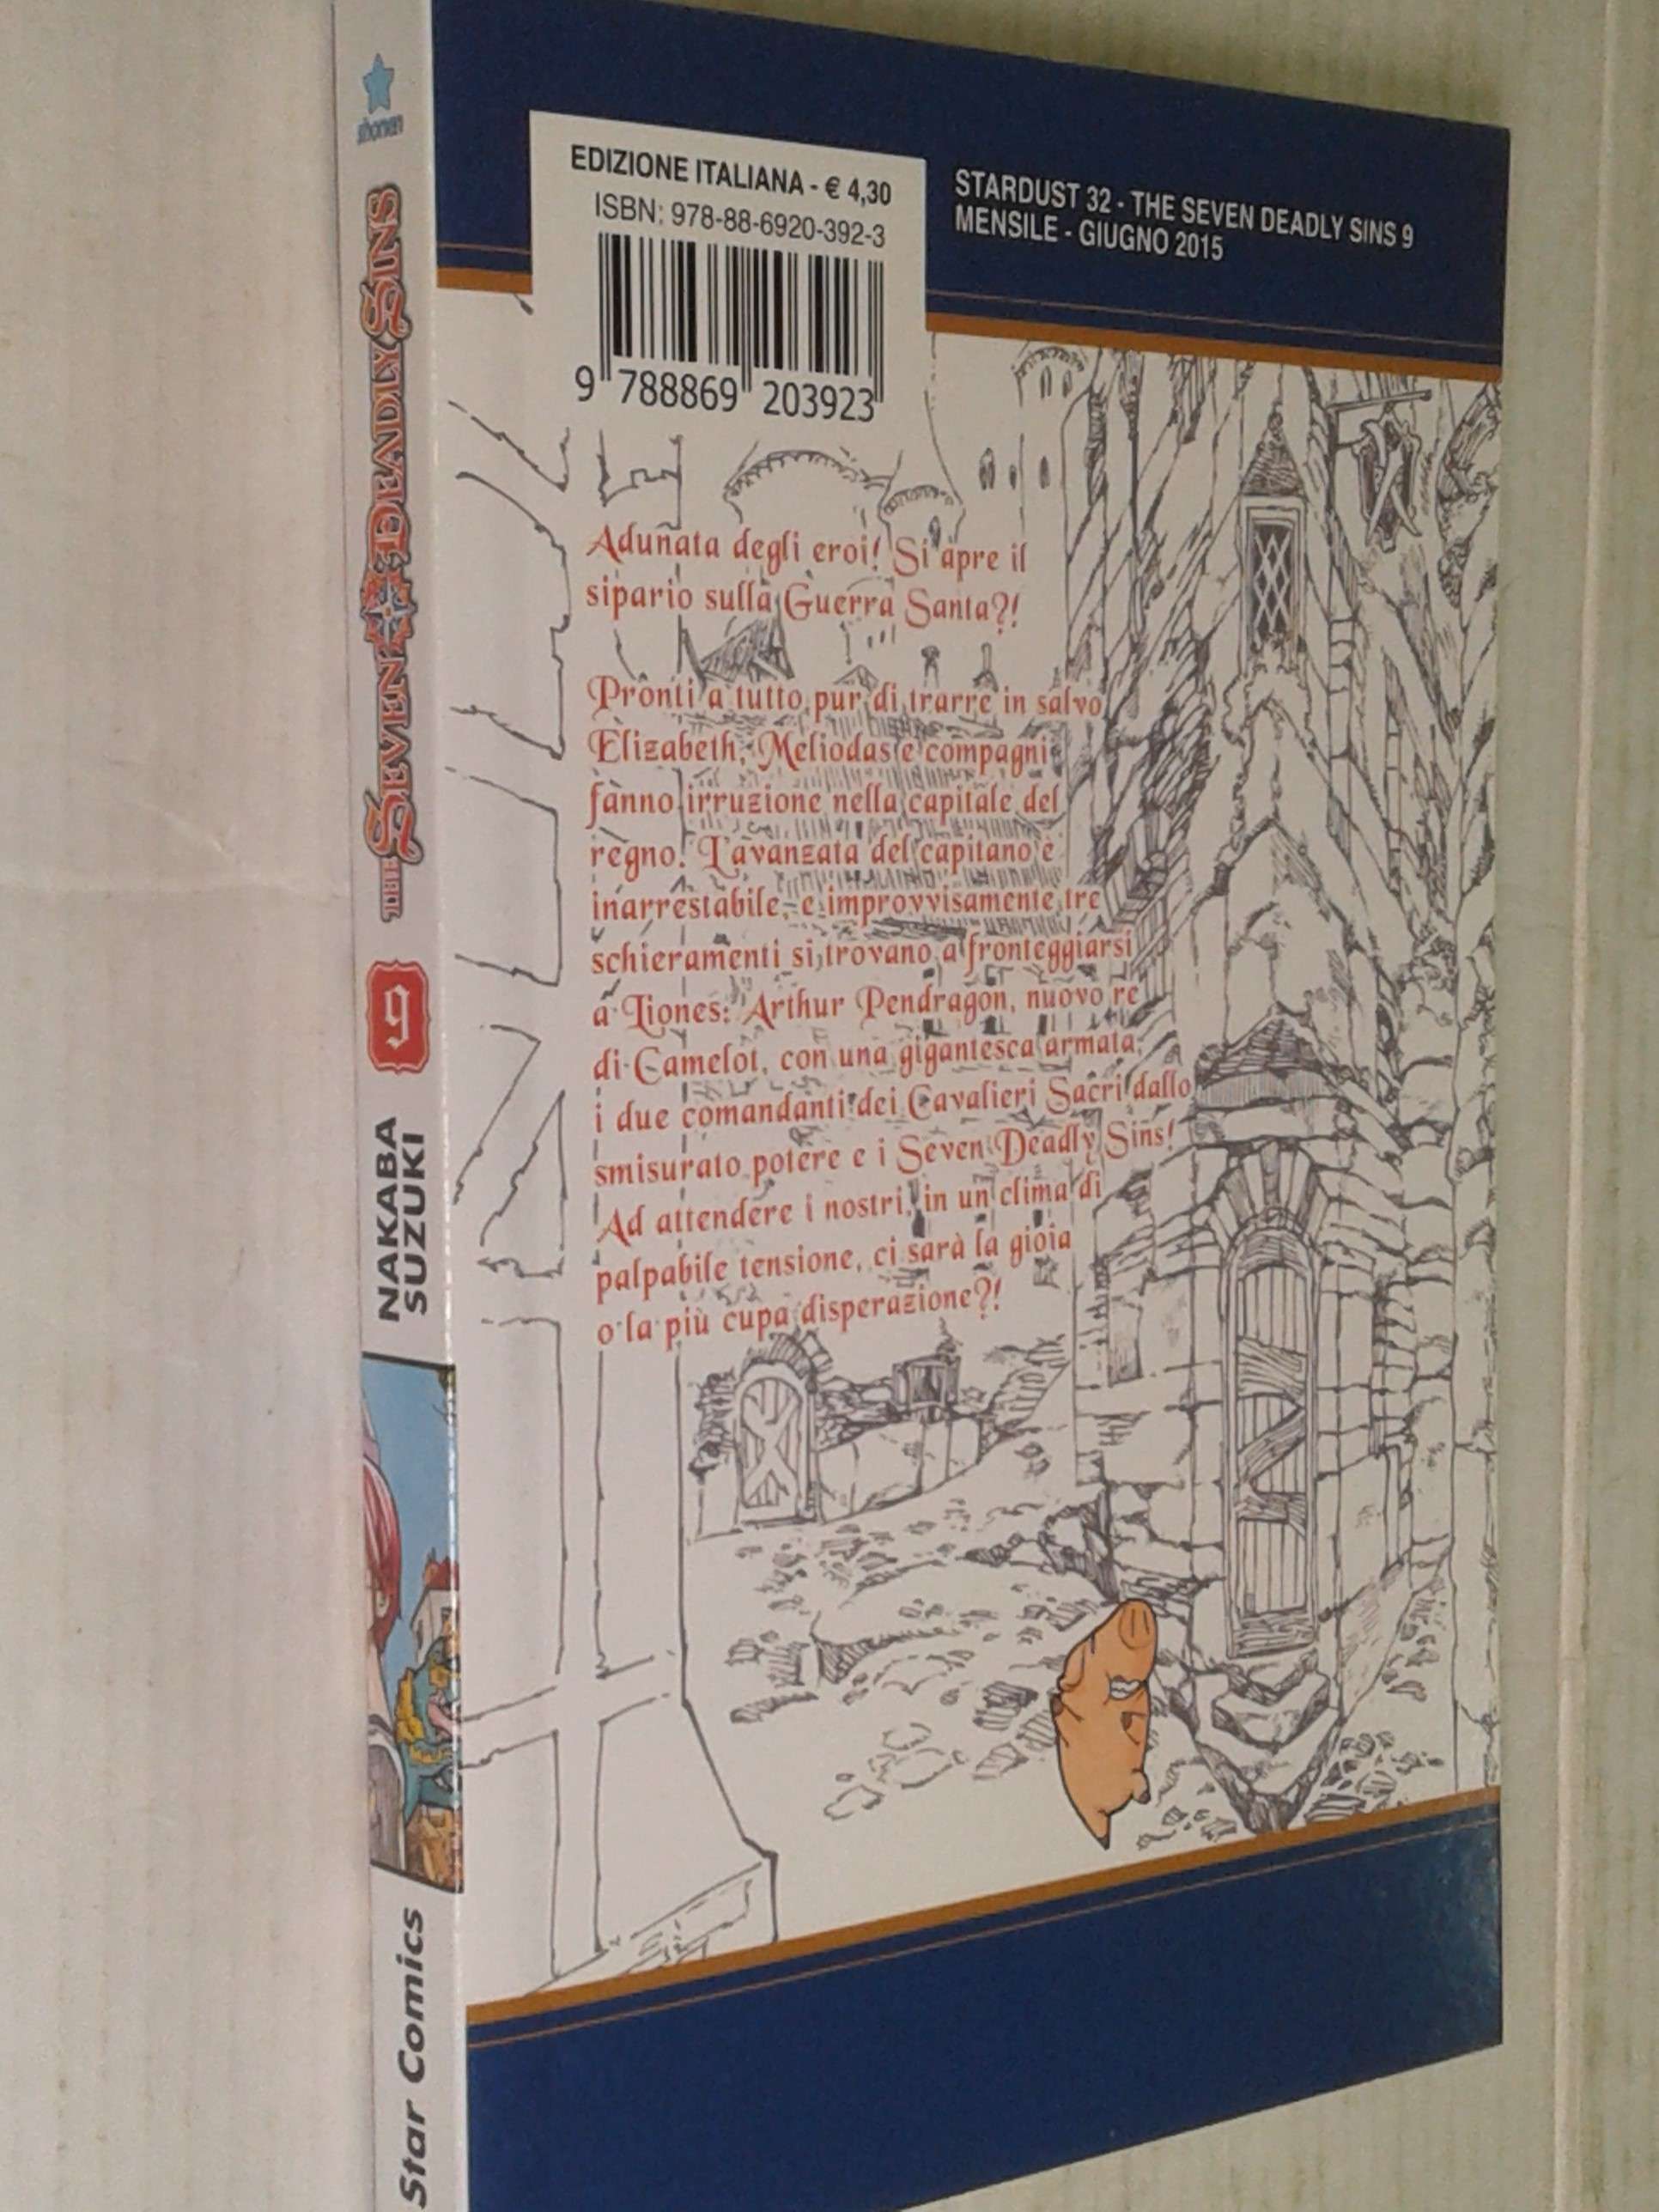 shonen
THE SEVEN DEADLY SINS
9
NAKABA
SUZUKI
Star Comics
EDIZIONE ITALIANA - € 4,30
ISBN: 978-88-6920-392-3
9 788869 203923
STARDUST 32 - THE SEVEN DEADLY SINS 9
MENSILE - GIUGNO 2015
Adunata degli eroi! Si apre il
sipario sulla Guerra Santa?!
Pronti a tutto pur di trarre in salvo
Elizabeth, Meliodas e compagni
fanno irruzione nella capitale del
regno. L'avanzata del capitano è
inarrestabile, e improvvisamente tre
schieramenti si trovano a fronteggiarsi
a Liones: Arthur Pendragon, nuovo re
di Camelot, con una gigantesca armata,
i due comandanti dei Cavalieri Sacri dallo
smisurato potere e i Seven Deadly Sins!
Ad attendere i nostri, in un clima di
palpabile tensione, ci sarà la gioia
o la più cupa disperazione?!